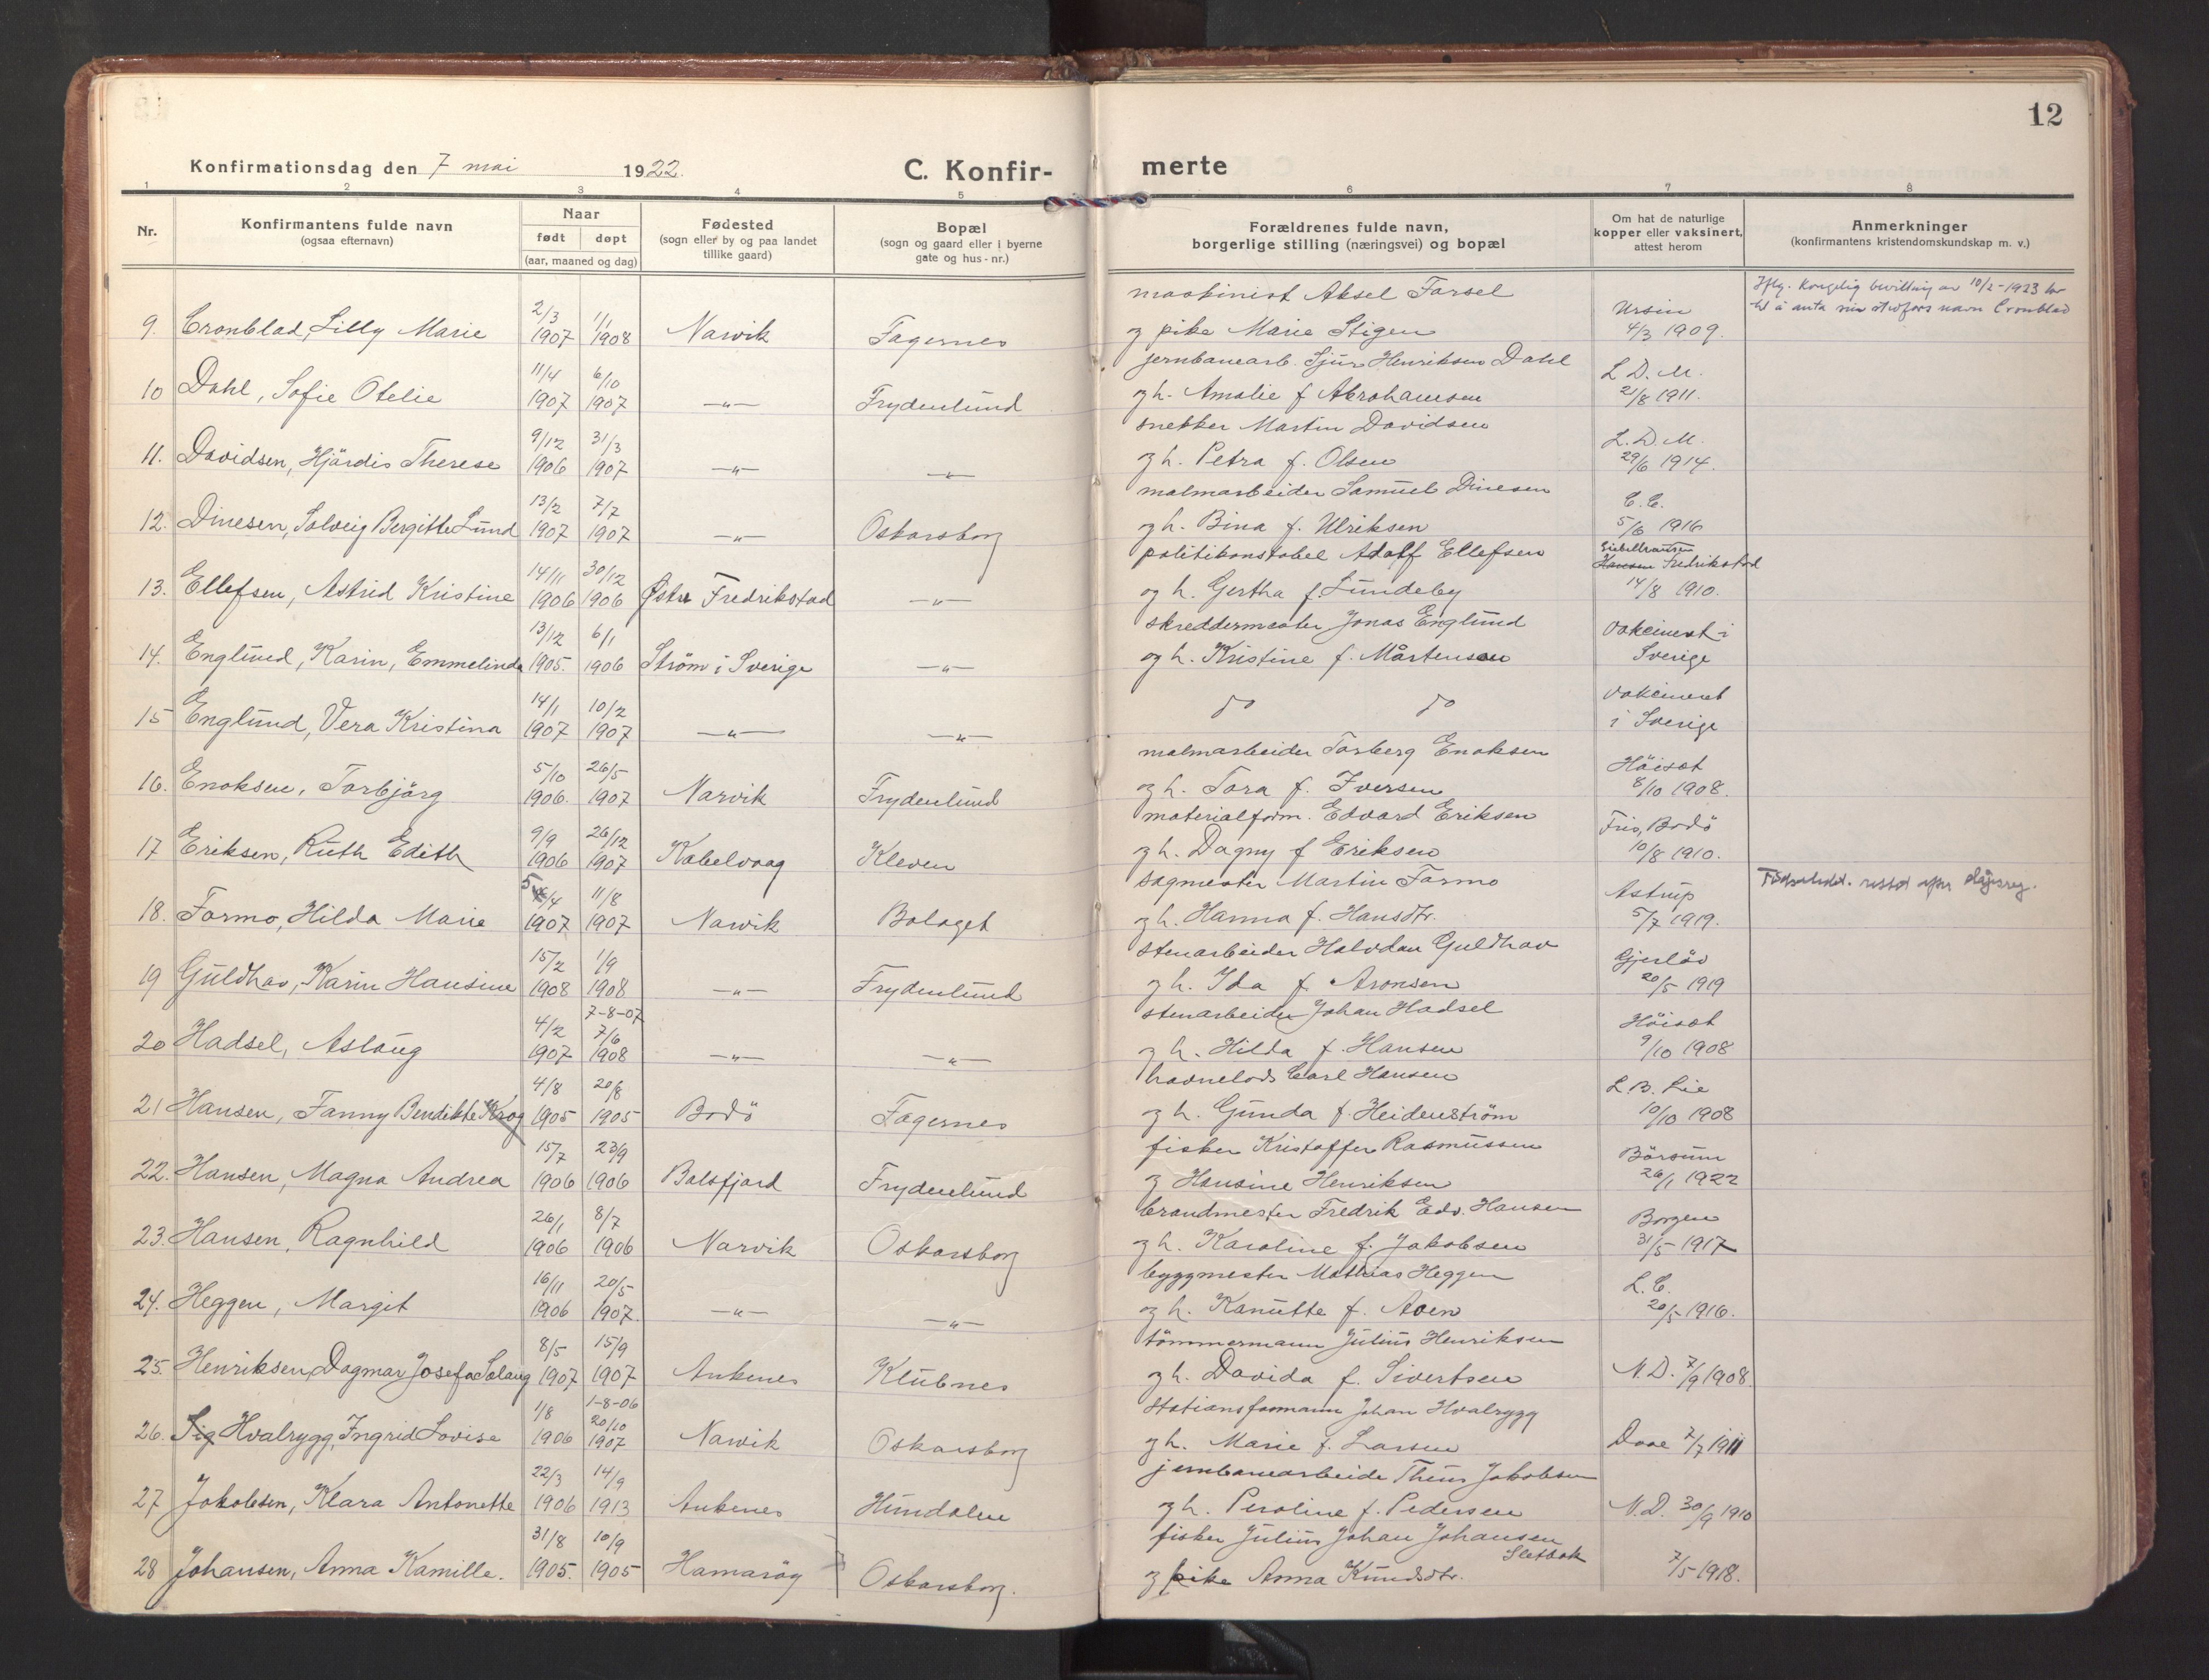 12
Konfirmationsdag den 7 mai 1922.
C. Konfir-merte
1 2 3 4 5 6 7 8
Nr.
Konfirmantens fulde navn
(ogsaa efternavn)
Naar
født døpt
(aar, maaned og dag)
Fødested
(sogn eller by og paa landet
tillike gaard)
Bopæl
(sogn og gaard eller i byerne
gate og hus-nr.)
Forældrenes fulde navn,
borgerlige stilling (næringsvei) og bopæl
Om hat de naturlige
kopper eller vaksinert,
attest herom
Anmerkninger
(konfirmantens kristendomskundskap m. v.)
maskinist Aksel Forsel
Iflg. kongelig bevilling av 10/2-1923
til å anta sin stedfars navn Cronblad
2/3 1/1 Ursin
9. Cronblad, Lilly Marie 1907 1908 Narvik Fagernes og pike Marie Stigen 4/3 1909.
11/4 6/10 jernbanearb. Sjur Henriksen Dahl L D. M.
10 Dahl, Sofie Otelie 1907 1907 —„— Frydenlund og h. Amalie f Abrahamsen 21/8 1911.
9/12 31/3 snekker Martin Davidsen L. D. M.
11. Davidsen, Hjördis Therese 1906 1907 —„— —„— og h. Petra f. Olsen 29/6 1914.
13/2 7/7 malmarbeider Samuel Dinesen C. C.
12. Dinesen, Solveig Bergitte Lund 1907 1907 —„— Oskarsborg og h. Bina f. Ulriksen 5/6 1916
14/11 30/12 politikonstabel Adolf Ellefsen Hansen Fredrikstad
13. Ellefsen, Astrid Kristine 1906 1906 Østre Fredrikstad —„— og h. Gertha f. Lundeby 14/8 1910.
13/12 6/1 skreddermester Jonas Englund vakcinert i
14. Englund, Karin, Emmelinda 1905. 1906 Ström i Sverige —„— og h. Kristine f. Mårtensen Sverige
14/1 10/2 do do vakcinert
15 Englund, Vera Kristina 1907 1907 —„— —„— i Sverige
5/10 26/5 malmarbeider Torberg Enoksen Höisæt
16. Enoksen, Torbjörg 1906. 1907 Narvik Frydenlund og h. Tora f. Iversen 8/10 1908.
9/9 26/12 materialform. Edvard Eriksen Friis, Bodö
17 Eriksen, Ruth Edith 1906 1907 Kabelvaag Kleven og h. Dagny f Eriksen 10/8 1910.
5/4 11/8 sagmester Martin Formo Astrup
18. Formo, Hilda Marie 1907 1907 Narvik Bolaget og h. Hanna f. Hansdtr. 5/7 1919.
15/2 1/9 stenarbeider Halvdan Guldhav Gjerlöv
19 Guldhav, Karin Hansine 1908 1908 —„— Frydenlund og h. Ida f. Aronsen 20/5 1919
7-8-07
4/2 7/6 stenarbeider Johan Hadsel Höisæt
20 Hadsel, Aslaug 1907 1908 —„— —„— og h. Hilda f. Hansen 9/10 1908
4/8 20/8 havnelods Carl Hansen L. B. Lie
21 Hansen, Fanny Bendikte Krog 1905 1905 Bodö Fagernes og h. Gunda f. Heidenström 10/10 1908
15/7 23/9 fisker Kristoffer Rasmussen Börsum
22. Hansen, Magna Andrea 1906 1906 Balsfjord Frydenlund og Hansine Henriksen 26/1 1922
26/1 8/7 brandmester Fredrik Edv. Hansen Borgen
23. Hansen, Ragnhild 1906 1906 Narvik Oskarsborg og h. Karoline f. Jakobsen 31/5 1917
16/11 20/5 byggmester Mathias Heggen L. C.
24. Heggen, Margit 1906 1907. —„— —„— og h. Kanutte f. Aven 20/5 1916.
8/5 15/9 tömmermann Julius Henriksen
25. Henriksen, Dagmar Josefa Solaug 1907 1907 Ankenes Klubnes og h. Davida f. Sivertsen N. D. 7/9 1908.
1-8-06
1/8 20/10 stationsformann Johan Hvalrygg
26. Sig Hvalrygg, Ingrid Lovise 1906 1907 Narvik Oskarsborg og h. Marie f. Larsen Dave 7/7 1911
22/3 14/9 jernbanearbeide Theus Jakobsen
27 Jakobsen, Klara Antonette 1906 1913 Ankenes Hundalen og h. Peroline f. Pedersen N. D. 30/9 1910
31/8 10/9 fisker Julius Johan Johansen
Sletbak
28 Johansen, Anna Kamille. 1905. 1905 Hamaröy Oskarsborg. og pike Anna Knudsdtr. 7/5 1918.